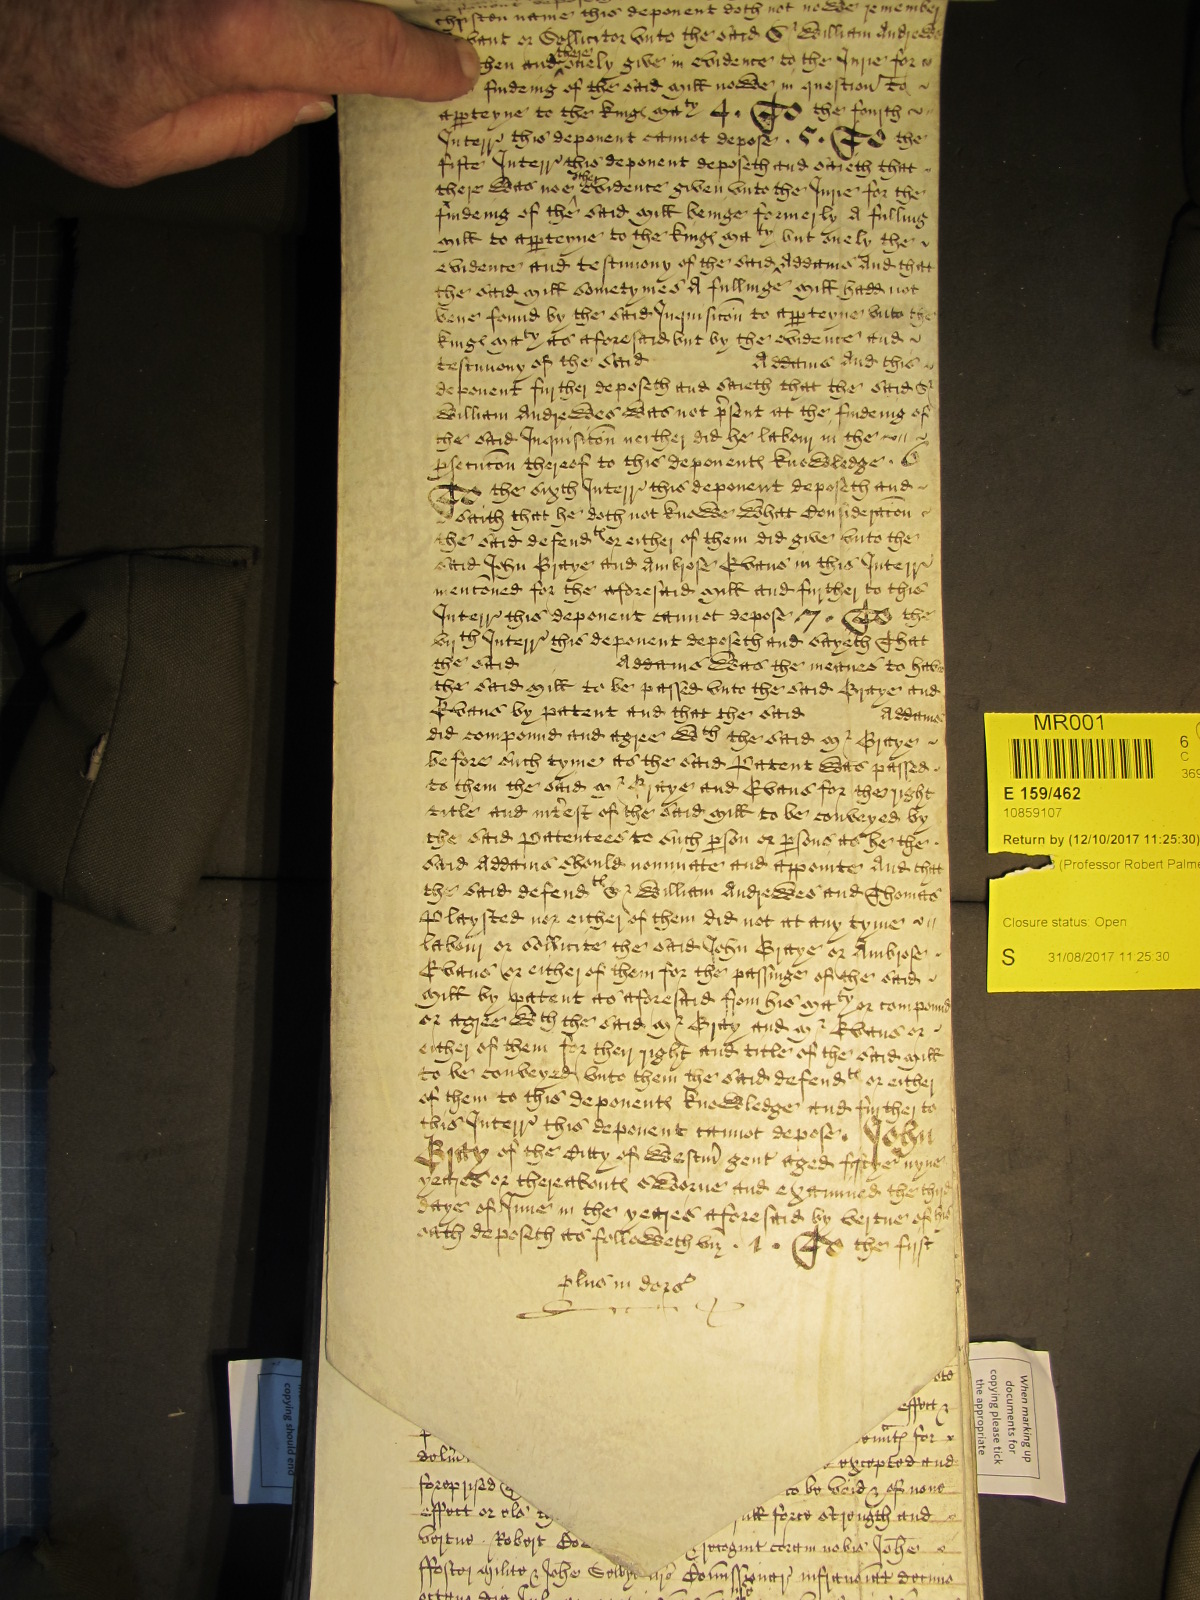 christen name this deponent doth not nowe remember
servant or Sollicitor unto the said Sr William Andrewes
then and there onely give in evidence to the Jurie for
findeing of the said mill nowe in question to
apperteyne to the kings maty 4. To the fourth
Interr this deponent cannot depose. 5. To the
fifte Interr this deponent deposeth and saieth that
there was noe other evidence given unto the Jurie for the
findeing of the said mill beinge formerly A fulling
mill to apperteyne to the kings maty but onely the
evidence and testimony of the said Addams And that
the said mill sometymes A fullinge mill hadd not
bene found by the said Inquisicon to apperteyne unto the
kings maty as aforesaid but by the evidence and
testimony of the said Addams And this
deponent further deposeth and saieth that the said Sr
William Andrewes was not psent at the findeing of
the said Inquisicon neither did he labour in the
psecucon thereof to this deponents knowledge. 6
To the sixth Interr this deponent deposeth and
saith that he doth not knowe what Consideracon
the said defendts or either of them did give unto the
said John Graye and Ambrose Evans in this Interr
mencioned for the aforesaid mill and further to this
Interr this deponent cannot depose 7. To the
viith Interr this deponent deposeth and sayeth That
the said Addams was the meanes to have
the said mill to be passed unto the said Graye and
Evans by patent and that the said Addams
did compound and agree wth the said mr Graye
before such tyme as the said Patent was passed
to them the said mr Graye and Evans for the right
title and interest of the said mill to be conveyed by
the said Patentees to such pson or psons as he the
said Addams should nominate and appointe And that
the said defendts Sr William Andrewes and Thomas
Playsted nor either of them did not at any tyme
labour or sollicite the said John Graye or Ambrose
Evans or either of them for the passinge of the said
mill by patent as aforesaid from his maty or compound
or agree wth the said mr Gray and mr Evans or
either of them for their right and title of the said mill
to be conveyed unto them the said defendts or either
of them to this deponents knowledge and further to
this Interr this deponent cannot depose. John
Gray of the Citty of Westm gent aged fiftye nyne
yeares or thereabouts sworne and examined the third
daye of June in the yeares aforesaid by vertue of his
oath deposeth as followeth viz. 1. To the first
plus in dors
effect &
for
excepted and
foreprised
to be void & of none
effect or els
full force strength and
vertue. Robert
recogn coram nobis Johe
ffoster milite & Johe
MR001
6
C
369
E 159/462
10859107
Return by (12/10/2017 11:25:30)
(Professor Robert Palme
Closure status: Open
S 31/08/2017 11:25:30
copying should end
When marking up
documents for
copying please tick
the appropriate